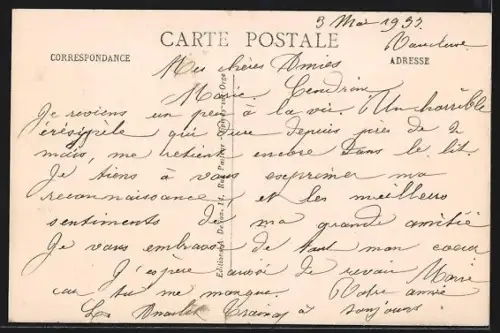 3 Mai 1933
CARTE POSTALE
Vaucluse
CORRESPONDANCE
ADRESSE
Mes chères Amies
Marie
Je reviens un peu à la vie. Un horrible
érésipèle qui dure depuis près de 2
mois, me retient encore dans le lit.
Je tiens à vous exprimer ma
reconnaissance, et les meilleurs
sentiments de ma grande amitié
Je vous embrasse de tout mon cœur
J'espère aussi de revoir Marie
car tu me manque Votre amie
à toujours
Editions